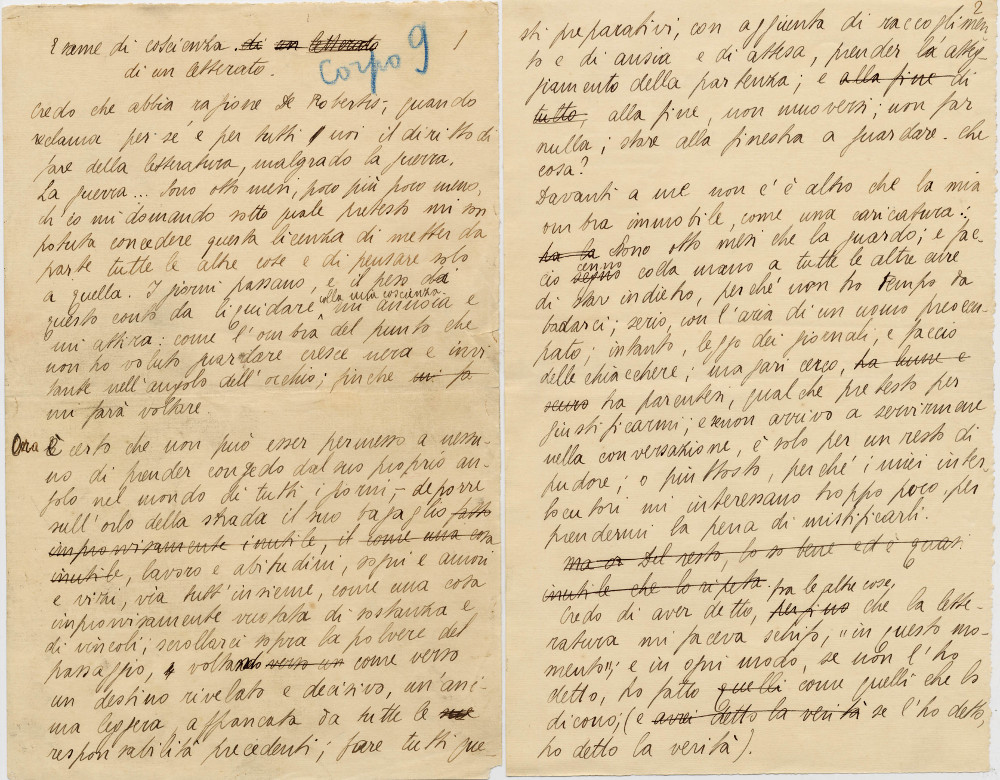 Esame di coscienza di un letterato
di un letterato.
Corpo 9
1
Credo che abbia ragione De Robertis, quando
reclama per sé e per tutti noi il diritto di
fare della letteratura, malgrado la guerra.
La guerra... Sono otto mesi, poco più poco meno,
ch'io mi domando sotto quale pretesto mi son
potuta concedere questa licenza di metter da
parte tutte le altre cose e di pensare solo
a quella. I giorni passano, e il peso di
questo conto da liquidare colla mia coscienza mi annoia e
mi attira: come l'ombra del punto che
non ho voluto guardare cresce nera e invi-
tante nell'angolo dell'occhio; finché mi fa
mi farà voltare.
Ora è certo che non può esser permesso a nessu-
no di prender congedo dal suo proprio an-
golo nel mondo di tutti i giorni, - deporre
sull'orlo della strada il suo bagaglio fatto
improvvisamente inutile, il come una cosa
inutile, lavoro e abitudini, sogni e amori
e vizi, via tutt'insieme, come una cosa
improvvisamente vuotata di sostanza e
di vincoli; scrollarci sopra la polvere del
passaggio, e voltando verso un come verso
un destino rivelato e decisivo, un'ani-
ma leggera, affrancata da tutte le sue
responsabilità precedenti; fare tutti que-
2
sti preparativi, con aggiunta di raccoglimen-
to e di ansia e di attesa, prender l'atteg-
giamento della partenza; e alla fine di
tutto, alla fine, non muoversi; non far
nulla; stare alla finestra a guardare. Che
cosa?
Davanti a me non c'è altro che la mia
ombra immobile, come una caricatura.
ha la Sono otto mesi che la guardo; e fac-
cio segno cenno colla mano a tutte le altre cure
di star indietro, perché non ho tempo da
badarci; serio, con l'aria di un uomo preoccu-
pato; intanto, leggo dei giornali, e faccio
delle chiacchere; magari cerco, ha lume e
scuro tra parentesi, qualche pretesto per
giustificarmi; e se non arrivo a servirmene
nella conversazione, è solo per un resto di
pudore; o piuttosto, perché i miei inter-
locutori mi interessano troppo poco, per
prendermi la pena di mistificarli.
ma or Del resto, lo so bene ed è quasi
inutile che lo ripeta.
Credo di aver detto, perfino tra le altre cose, che la lette-
ratura mi faceva schifo, "in questo mo-
mento"; e in ogni modo, se non l'ho
detto, ho fatto quelli come quelli che lo
dicono; (e avrei detto la verità se l'ho detto,
ho detto la verità).